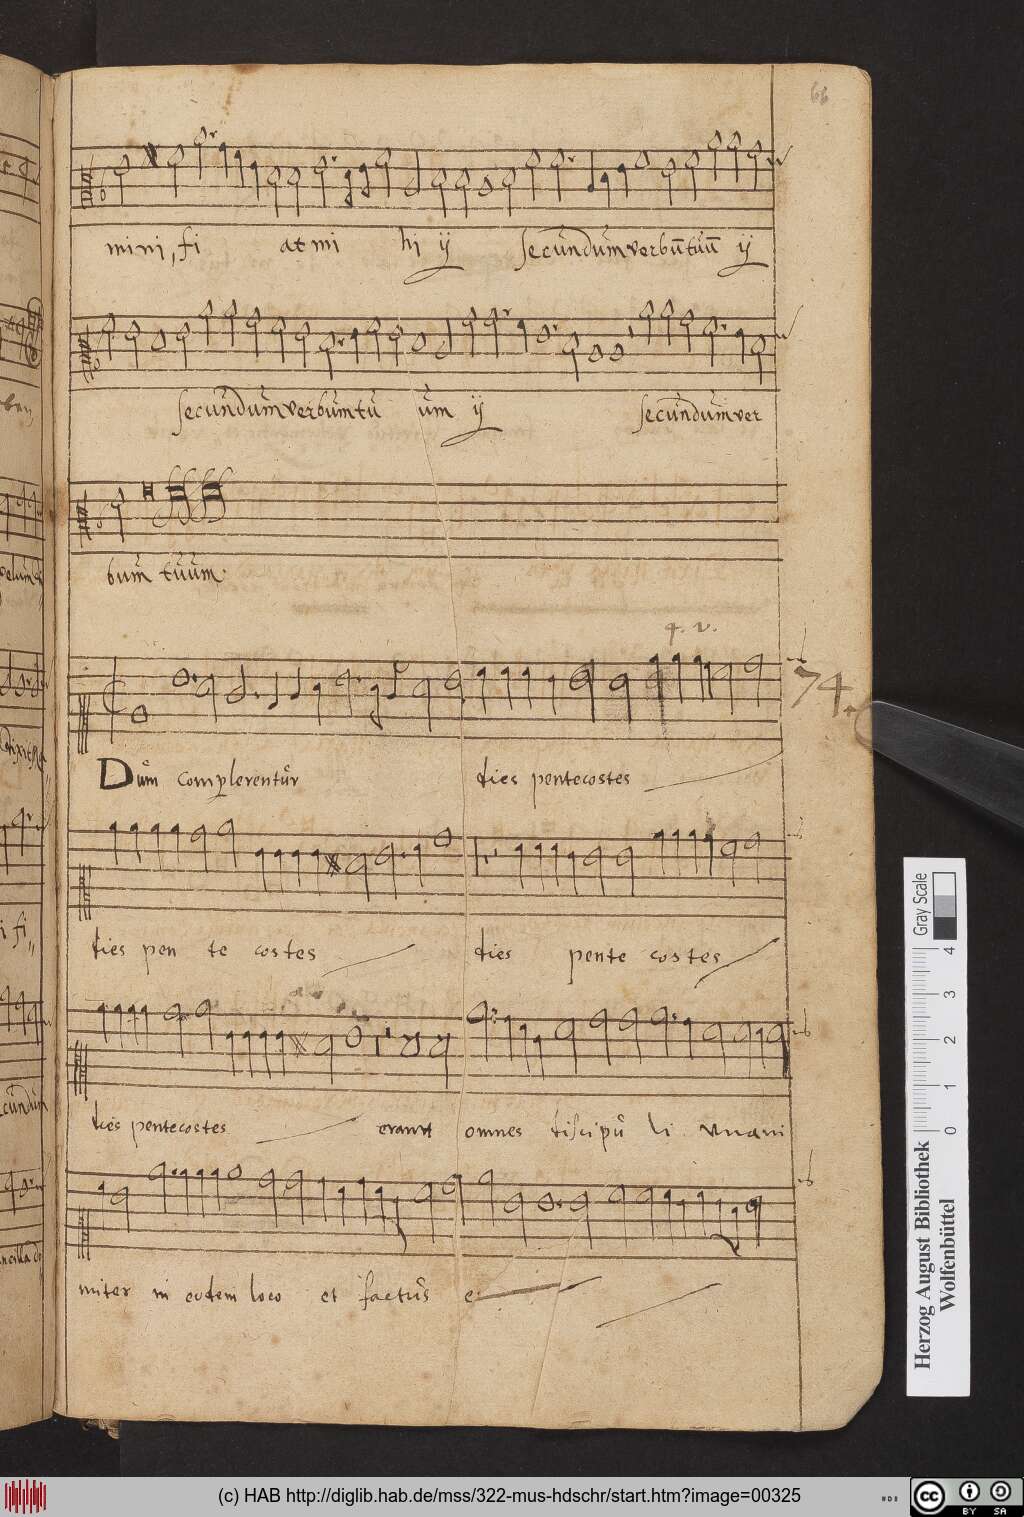 66
mini, fi at mi hi ij secundum verbū tuū ij
secundum verbum tu um ij secundum ver
bum tuum.
4. v.
74.
Dum complerentur dies pentecostes
dies pen te costes dies pente costes
dies pentecostes erant omnes discipu li unani
miter in eodem loco et factus e
Gray Scale
0 1 2 3 4
Herzog August Bibliothek
Wolfenbüttel
(c) HAB http://diglib.hab.de/mss/322-mus-hdschr/start.htm?image=00325
cc BY SA